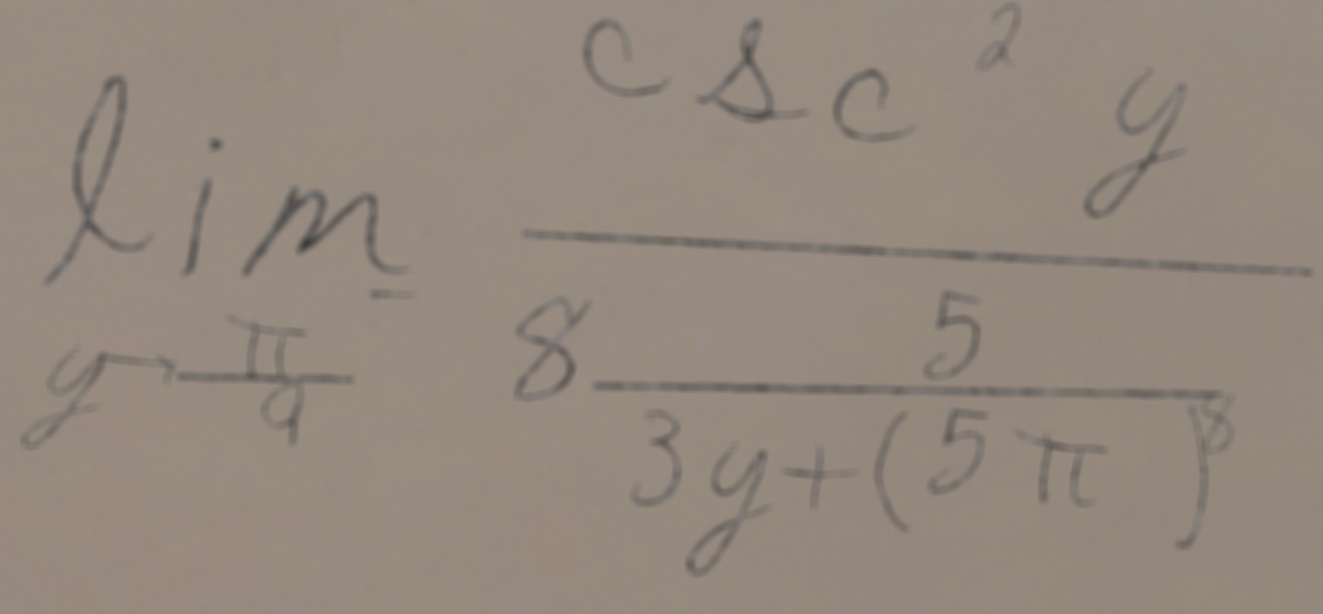 \lim_{y \to \frac{\pi}{9}} \frac{\csc^2 y}{8 \frac{5}{3y + (5\pi)^8}}